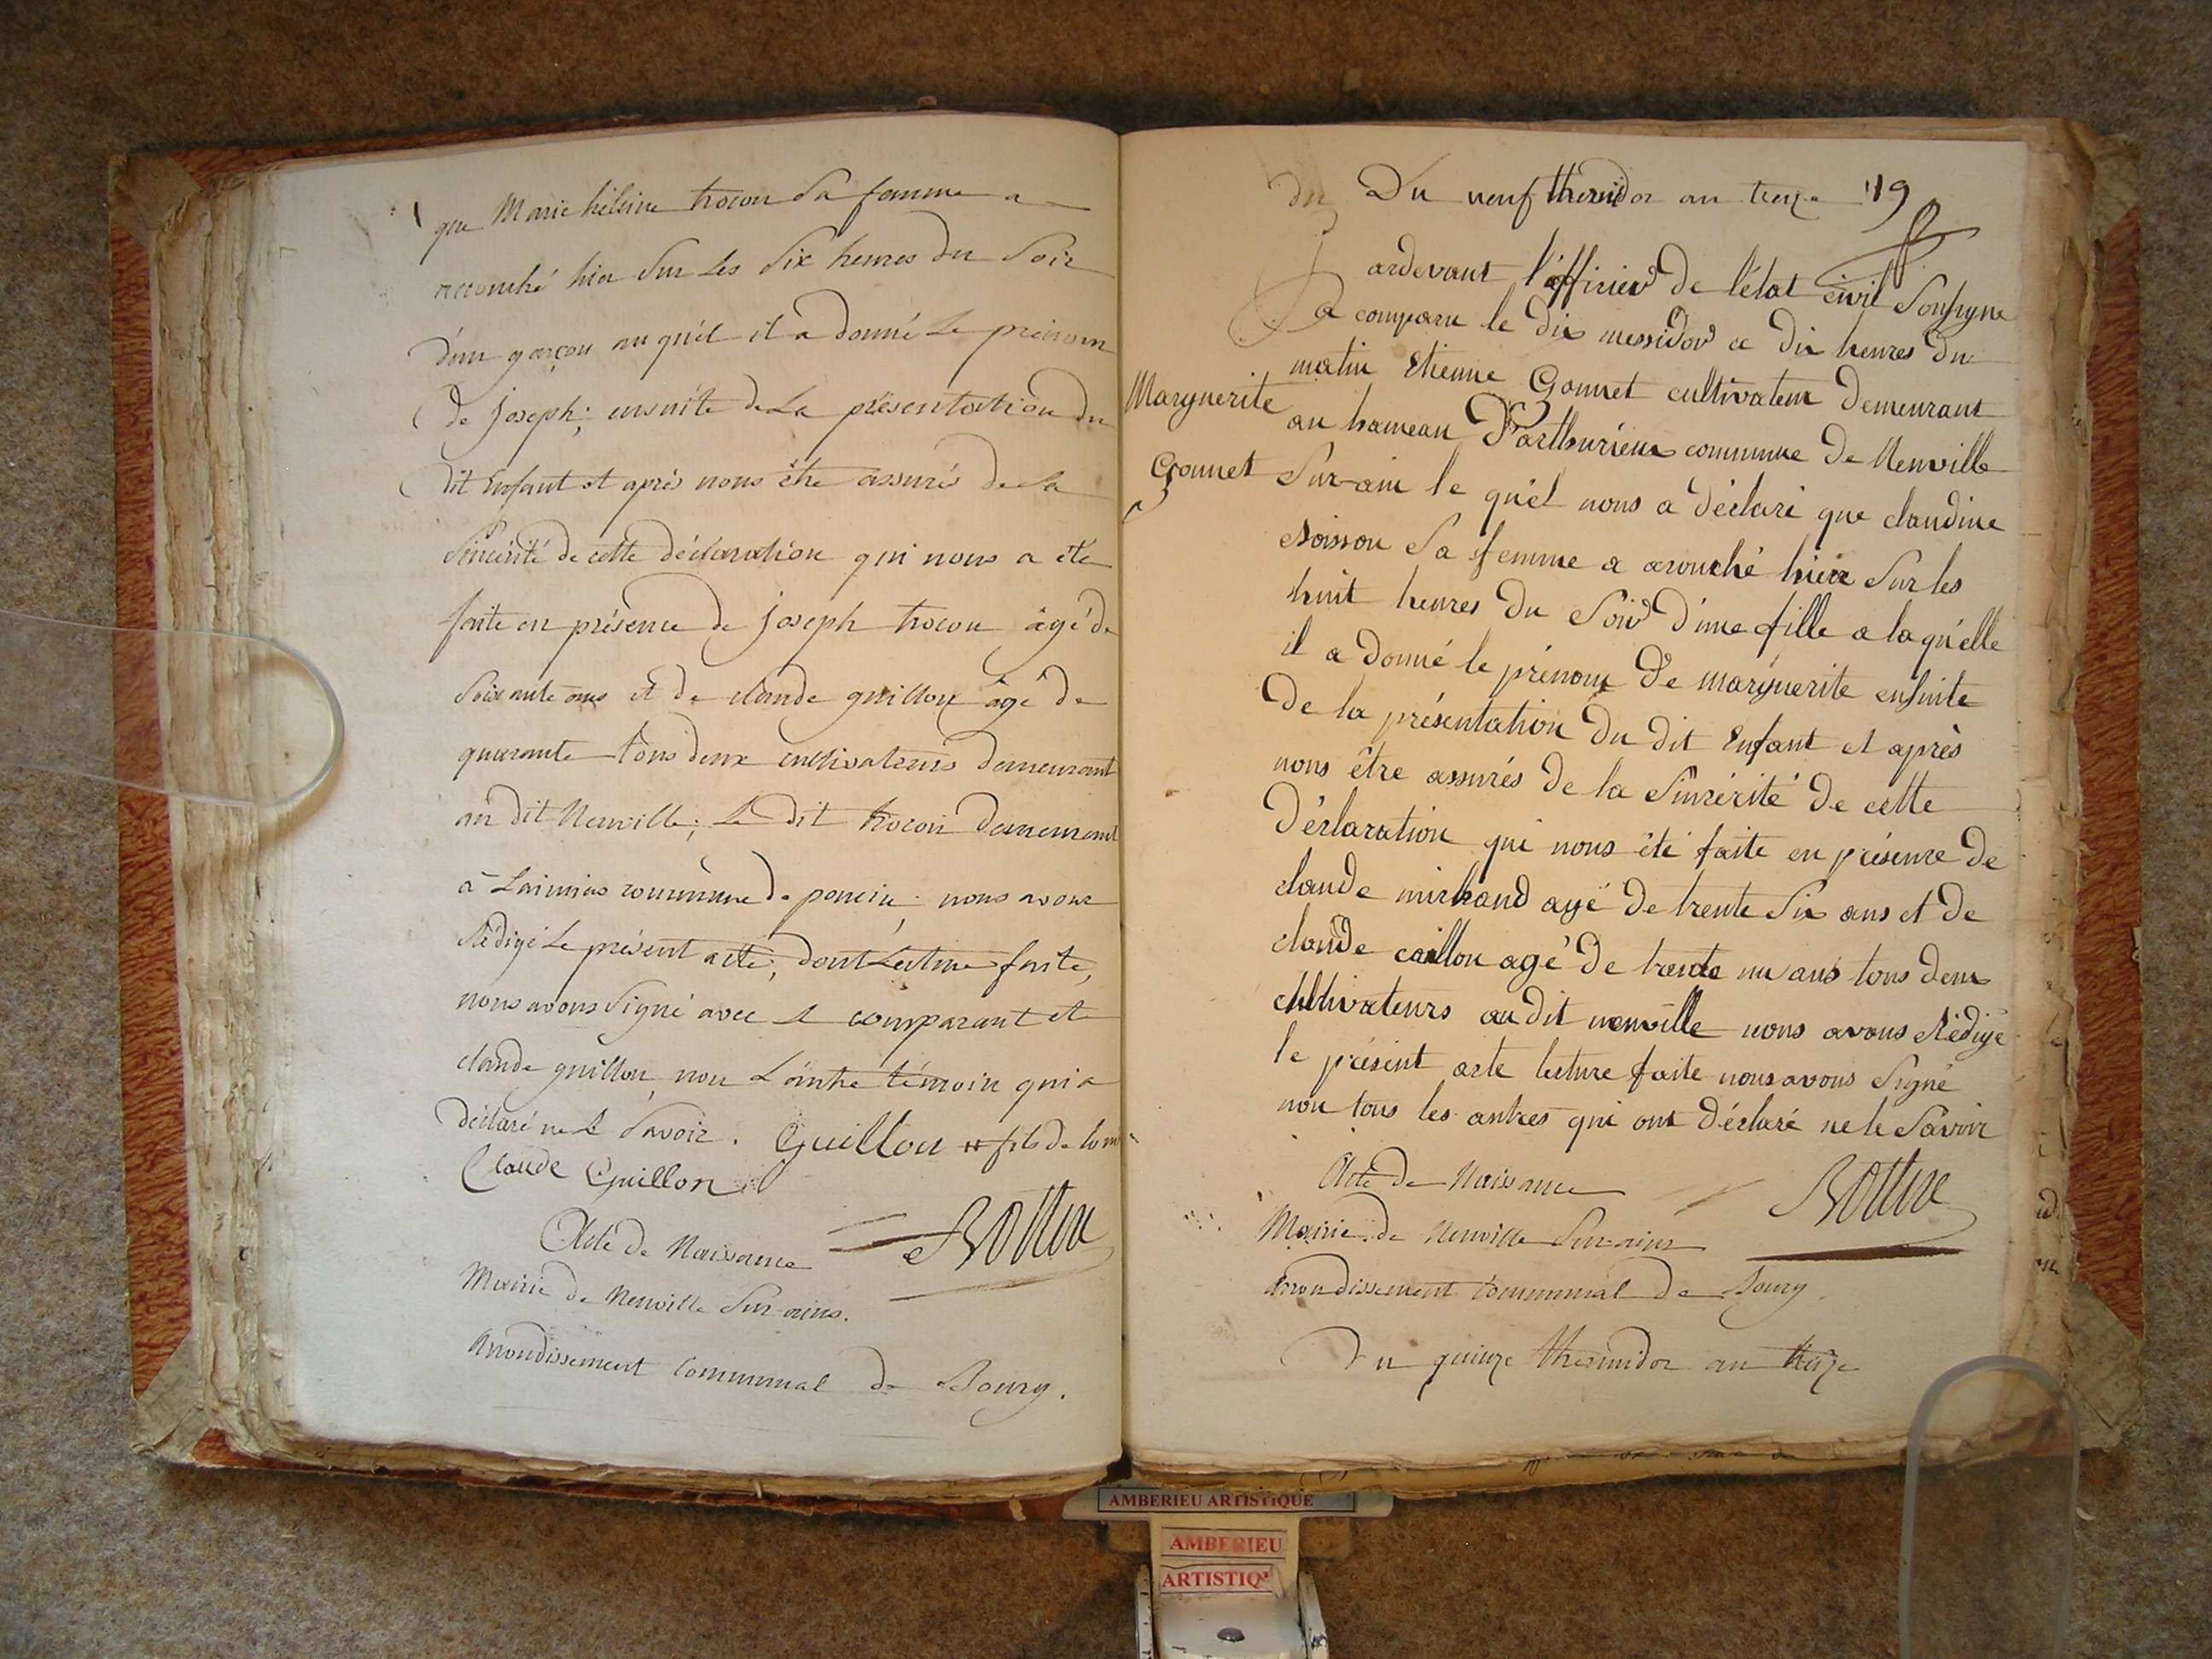 que Marie hélène trocon Sa femme a
accouché hier Sur Les Six heures du Soir
d'un garçon au quél il a donné Le prénom
de Joseph; ensuite de La présentation du
dit Enfant et après nous être assurés de la
Sincérité de cette déclaration qui nous a été
faite en présence de Joseph trocon âgé de
Soixante ans et de claude guillon âgé de
quarante tous deux cultivateurs demeurant
au dit Neuville; Le dit trocon demeurant
à commune de poncin; nous avons
Rédigé Le présent acte; dont Lecture faite,
nous avons Signé avec le comparant et
claude guillon, non L'autre témoin qui a
déclaré ne le Savoir. Guillon fils de
Claude Guillon
Acte de Naissance
Mairie de Neuville Sur-ains.
Arrondissement Communal de Bourg.
du Du neuf thermidor an treize 119
Pardevant l'officier de l'état civil Soussigné
a comparu le dix messidor a dix heures du
matin Etienne Gonnet cultivateur demeurant
Marguerite
au hameau commune de Neuville
Gonnet
Sur-ain le quél nous a déclaré que claudine
Soisson Sa femme a acouché hier Sur les
huit heures du Soir d'une fille a laquélle
il a donné le prénom de marguerite ensuite
de la présentation du dit Enfant et après
nous être assurés de la Sincérité de cette
déclaration qui nous été faite en présence de
claude michaud agé de trente Six ans et de
claude caillon agé de trente un ans tous deux
cultivateurs au dit neuville nous avons Rédigé
le présent acte lecture faite nous avons Signé
non tous les autres qui ont déclaré ne le Savoir
Acte de Naissance
Mairie de Neuville Sur-ains
Arrondissement Communal de Bourg.
Du quinze thermidor an treize
AMBERIEU ARTISTIQUE
AMBERIEU
ARTISTIQ